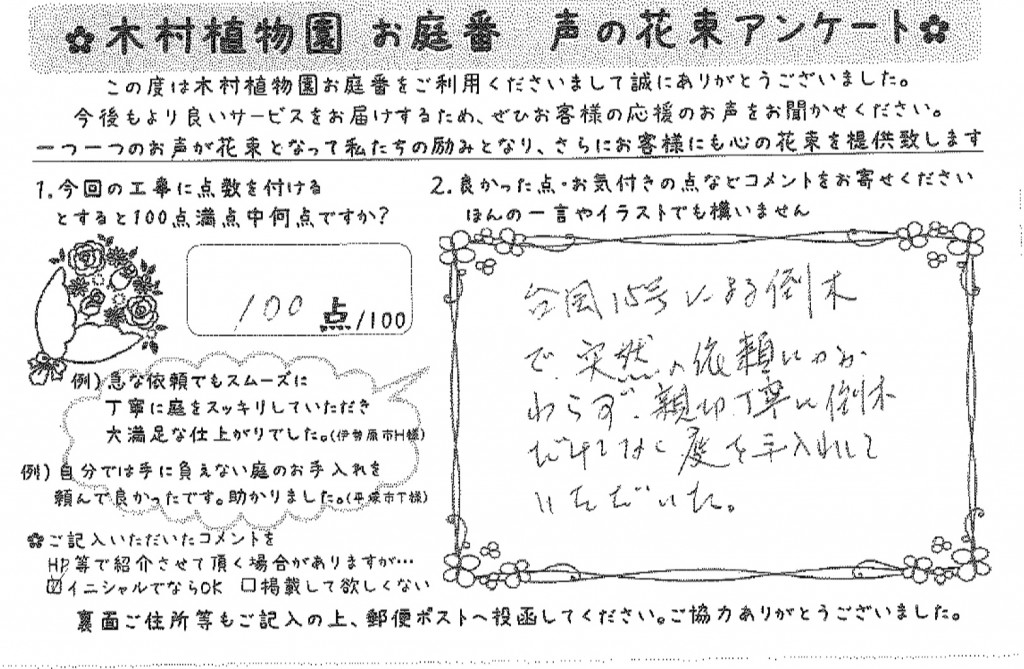 ✿木村植物園 お庭番 声の花束アンケート✿
この度は木村植物園お庭番をご利用くださいまして誠にありがとうございました。
今後もより良いサービスをお届けするため、ぜひお客様の応援のお声をお聞かせください。
一つ一つのお声が花束となって私たちの励みとなり、さらにお客様にも心の花束を提供致します
1.今回の工事に点数を付ける
とすると100点満点中何点ですか?
100 点/100
例)急な依頼でもスムーズに
丁寧に庭をスッキリしていただき
大満足な仕上がりでした。(伊勢原市H様)
例)自分では手に負えない庭のお手入れを
頼んで良かったです。助かりました。(平塚市T様)
✿ご記入いただいたコメントを
HP等で紹介させて頂く場合がありますが…
☑イニシャルでならOK □掲載して欲しくない
2.良かった点・お気付きの点などコメントをお寄せください
ほんの一言やイラストでも構いません
台風15号による倒木
で、突然の依頼にかか
わらず、親切丁寧に倒木
だけでなく庭を手入れして
いただいた。
裏面ご住所等もご記入の上、郵便ポストへ投函してください。ご協力ありがとうございました。